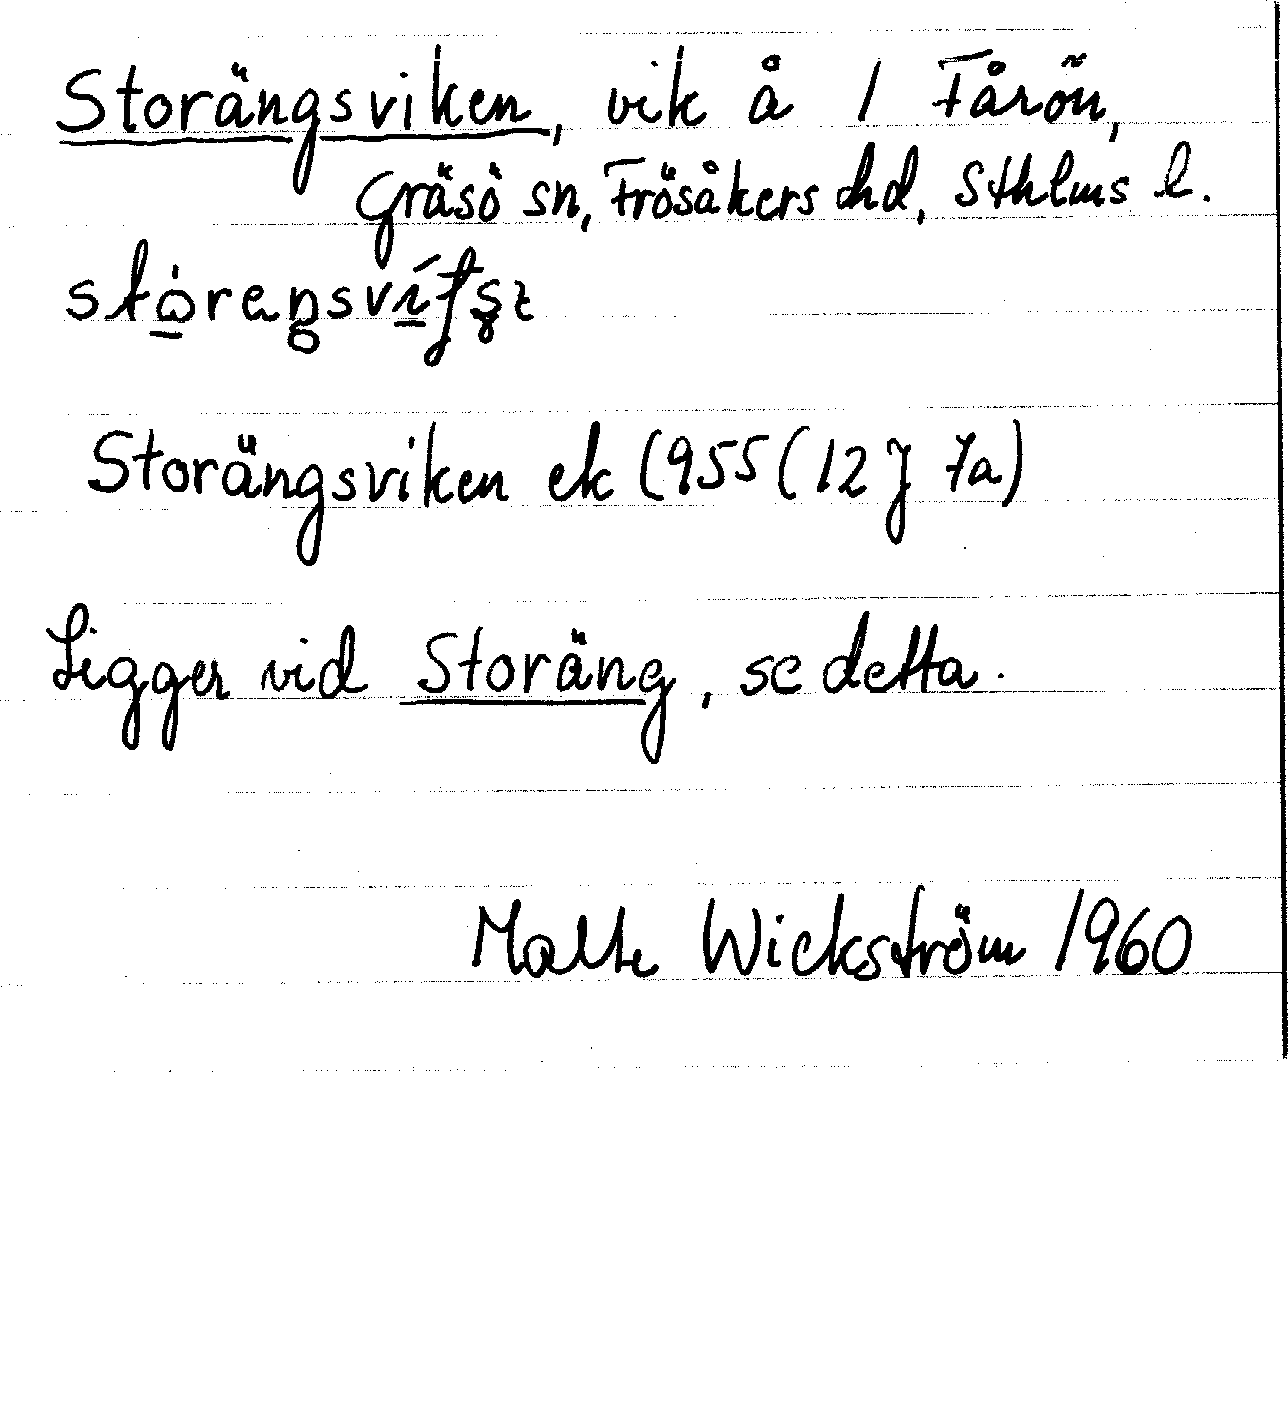 Storängsviken, vik å 1 Fårön,
Gräsö sn, Frösåkers hd, Sthlms l.
Storängsviken ek 1955 (12 J 7a)
Ligger vid Storäng, se detta.
Malte Wickström 1960